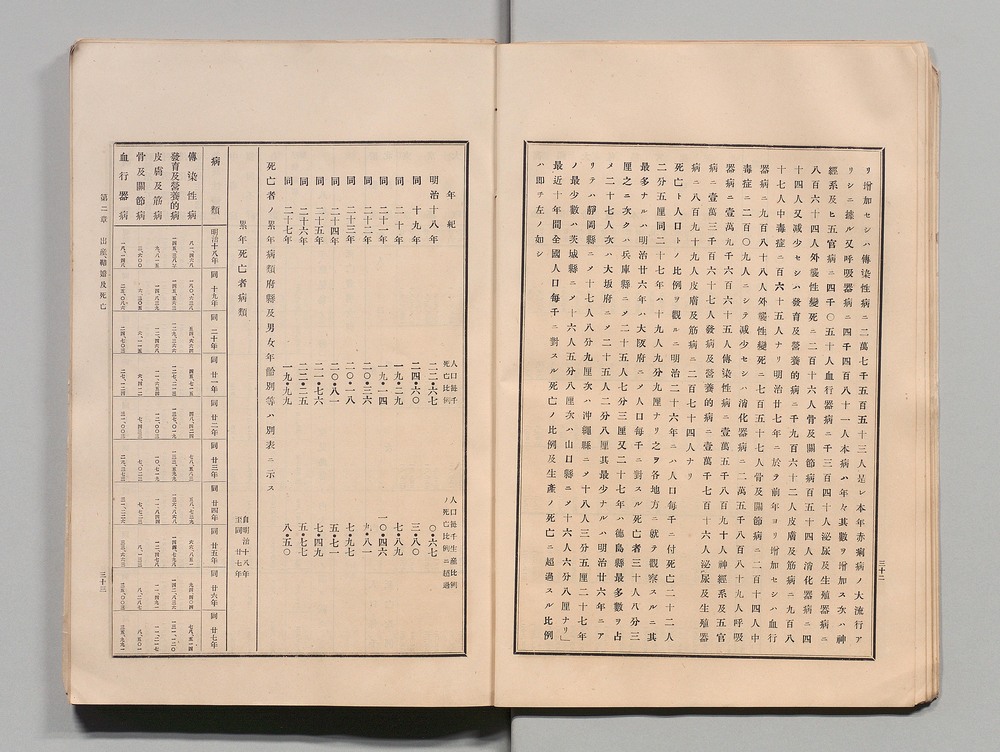 リ增加セシハ傳染性病ニ二萬七千五百五十三人是レ本年赤痢病ノ大流行ア
リシニ據ル又呼吸器病ニ四千四百八十一人本病ハ年々其數ヲ增加ス次ハ神
經系及ヒ五官病ニ四千〇五十人血行器病ニ千三百四十人泌尿及生殖器病ニ
八百六十四人外襲性變死ニ二百十六人骨及關節病百五十四人消化器病ニ四
十四人又減少セシハ發育及營養的病ニ千九百六十二人皮膚及筋病ニ九百八
十七人中毒症ニ百六十五人ナリ明治廿七年ニ於ヲ前年ヨリ增加セシハ血行
器病ニ九百八十八人外襲性變死ニ七百五十七人骨及關節病ニ二百十四人中
毒症ニ二百〇九人ニシテ減少セシハ消化器病ニ二萬五千八百八十九人呼吸
器病ニ壹萬九千六百六十五人傳染性病ニ壹萬五千八百九十人神經系及五官
病ニ壹萬三千百六十七人發病及營養的病ニ壹萬千七百十六人泌尿及生殖器
病ニ八百九十九人皮膚及筋病ニ二百七十四人ナリ
死亡ト人口トノ比例ヲ觀ルニ明治二十六年ニハ人口每千ニ付死亡二十二人
二分五厘同二十七年ハ十九人九分九厘ナリ之ヲ各地方ニ就テ觀察スルニ其
最多ナルハ明治廿六年ハ大阪府ニメ人口每千ニ對スル死亡者三十人八分三
厘之ニ次クハ兵庫縣ニメ二十五人七分三厘又二十七年ハ德島縣最多數ヲ占
メ二十七人次ハ大坂府ニメ二十五人二分八厘其最少ナルハ明治廿六年ニア
リテハ靜岡縣ニメ十七人八分九厘次ハ沖繩縣ニメ十八人三分五厘二十七年
ノ最少數ハ茨城縣ニメ十六人五分八厘次ハ山口縣ニメ十六人六分八厘ナリ」
最近十年間全國人口每千ニ對スル死亡ノ比例及生產ノ死亡ニ超過スル比例
ハ即チ左ノ如シ
三十二
年紀 人口每千死亡比例 人口每千生產比例ノ死亡比例ニ超過
明治十八年 二三・六七 〇・六七
同 十九年 二四・六〇 三・八〇
同 二十年 一九・二九 七・八九
同 二十一年 一九・一四 一〇・四六
同 二十二年 二〇・三六 九・八一
同 二十三年 二〇・一八 七・九七
同 二十四年 二〇・八一 五・七一
同 二十五年 二一・七六 七・四九
同 二十六年 二二・二五 五・七七
同 二十七年 一九・九九 八・五〇
死亡者ノ累年病類府縣及男女年齡別等ハ別表ニ示ス
累年死亡者病類 自明治十八年至同廿七年
病類 明治十八年 同 十九年 同 二十年 同 廿一年 同 廿二年 同 廿三年 同 廿四年 同 廿五年 同 廿六年 同 廿七年
傳染性病
發育及營養的病
皮膚及筋病
骨及關節病
血行器病
第二章 出產婚姻及死亡
三十三